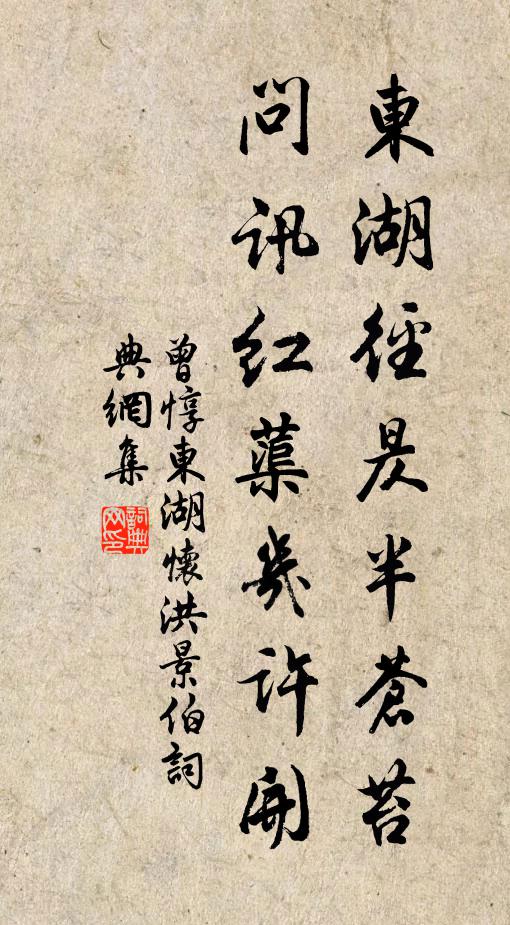 東湖徑是半蒼苔
問訊紅蕖幾許開
曾惇東湖懷洪景伯詞
典網集
詞典
网印